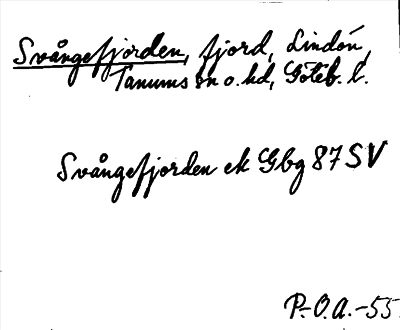 Svångefjorden, fjord, Lindön,
Tanums sn o. hd, Göteb. l.
Svångefjorden ek Gbg 87 SV
P.-O.A.-55